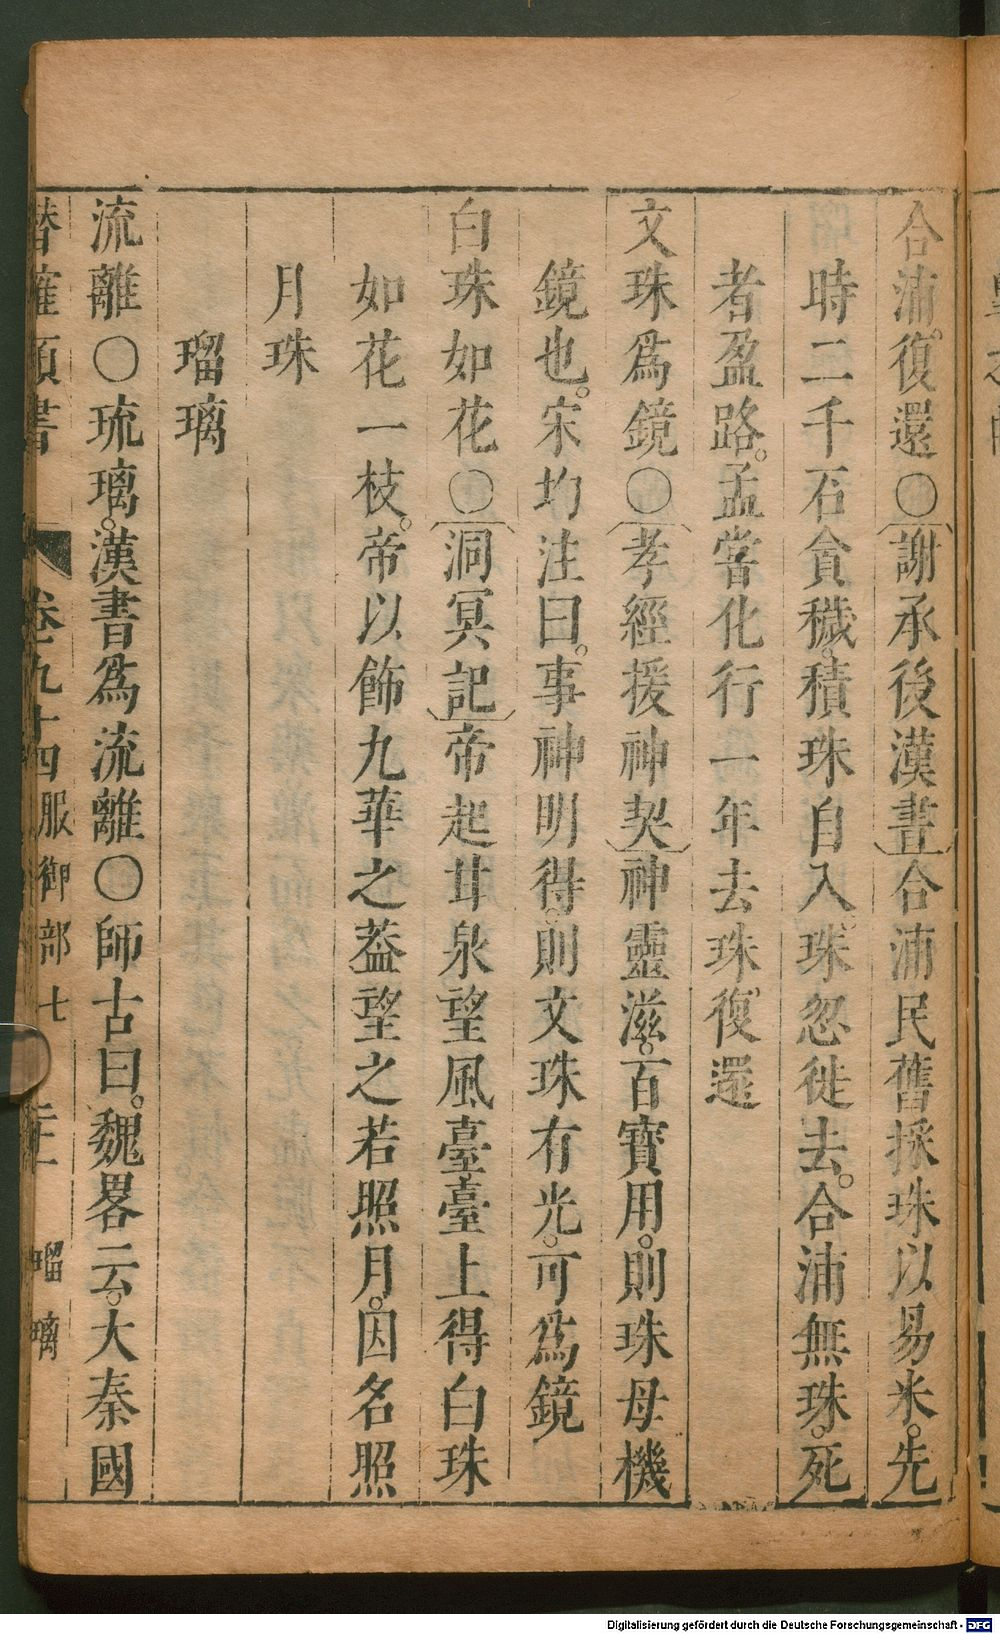 合浦復還〇謝承後漢書合浦民舊採珠以易米。先
時二千石貪穢。積珠自入。珠忽徙去。合浦無珠。死
者盈路。孟嘗化行一年去珠復還
文珠爲鏡〇孝經援神契神靈滋。百寶用。則珠母機
鏡也。宋均注曰。事神明得。則文珠有光。可爲鏡
白珠如花〇洞冥記帝起甘泉望風臺臺上得白珠
如花一枝。帝以飾九華之葢望之若照月。因名照
月珠
瑠璃
流離〇琉璃。漢書爲流離〇師古曰。魏畧云。大秦國
潛確類書 卷九十四 服御部七 瑠璃
Digitalisierung gefördert durch die Deutsche Forschungsgemeinschaft - DFG